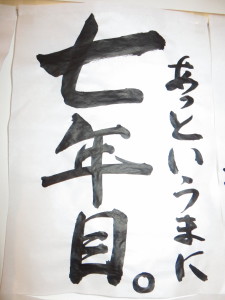 あっというまに
七年目。